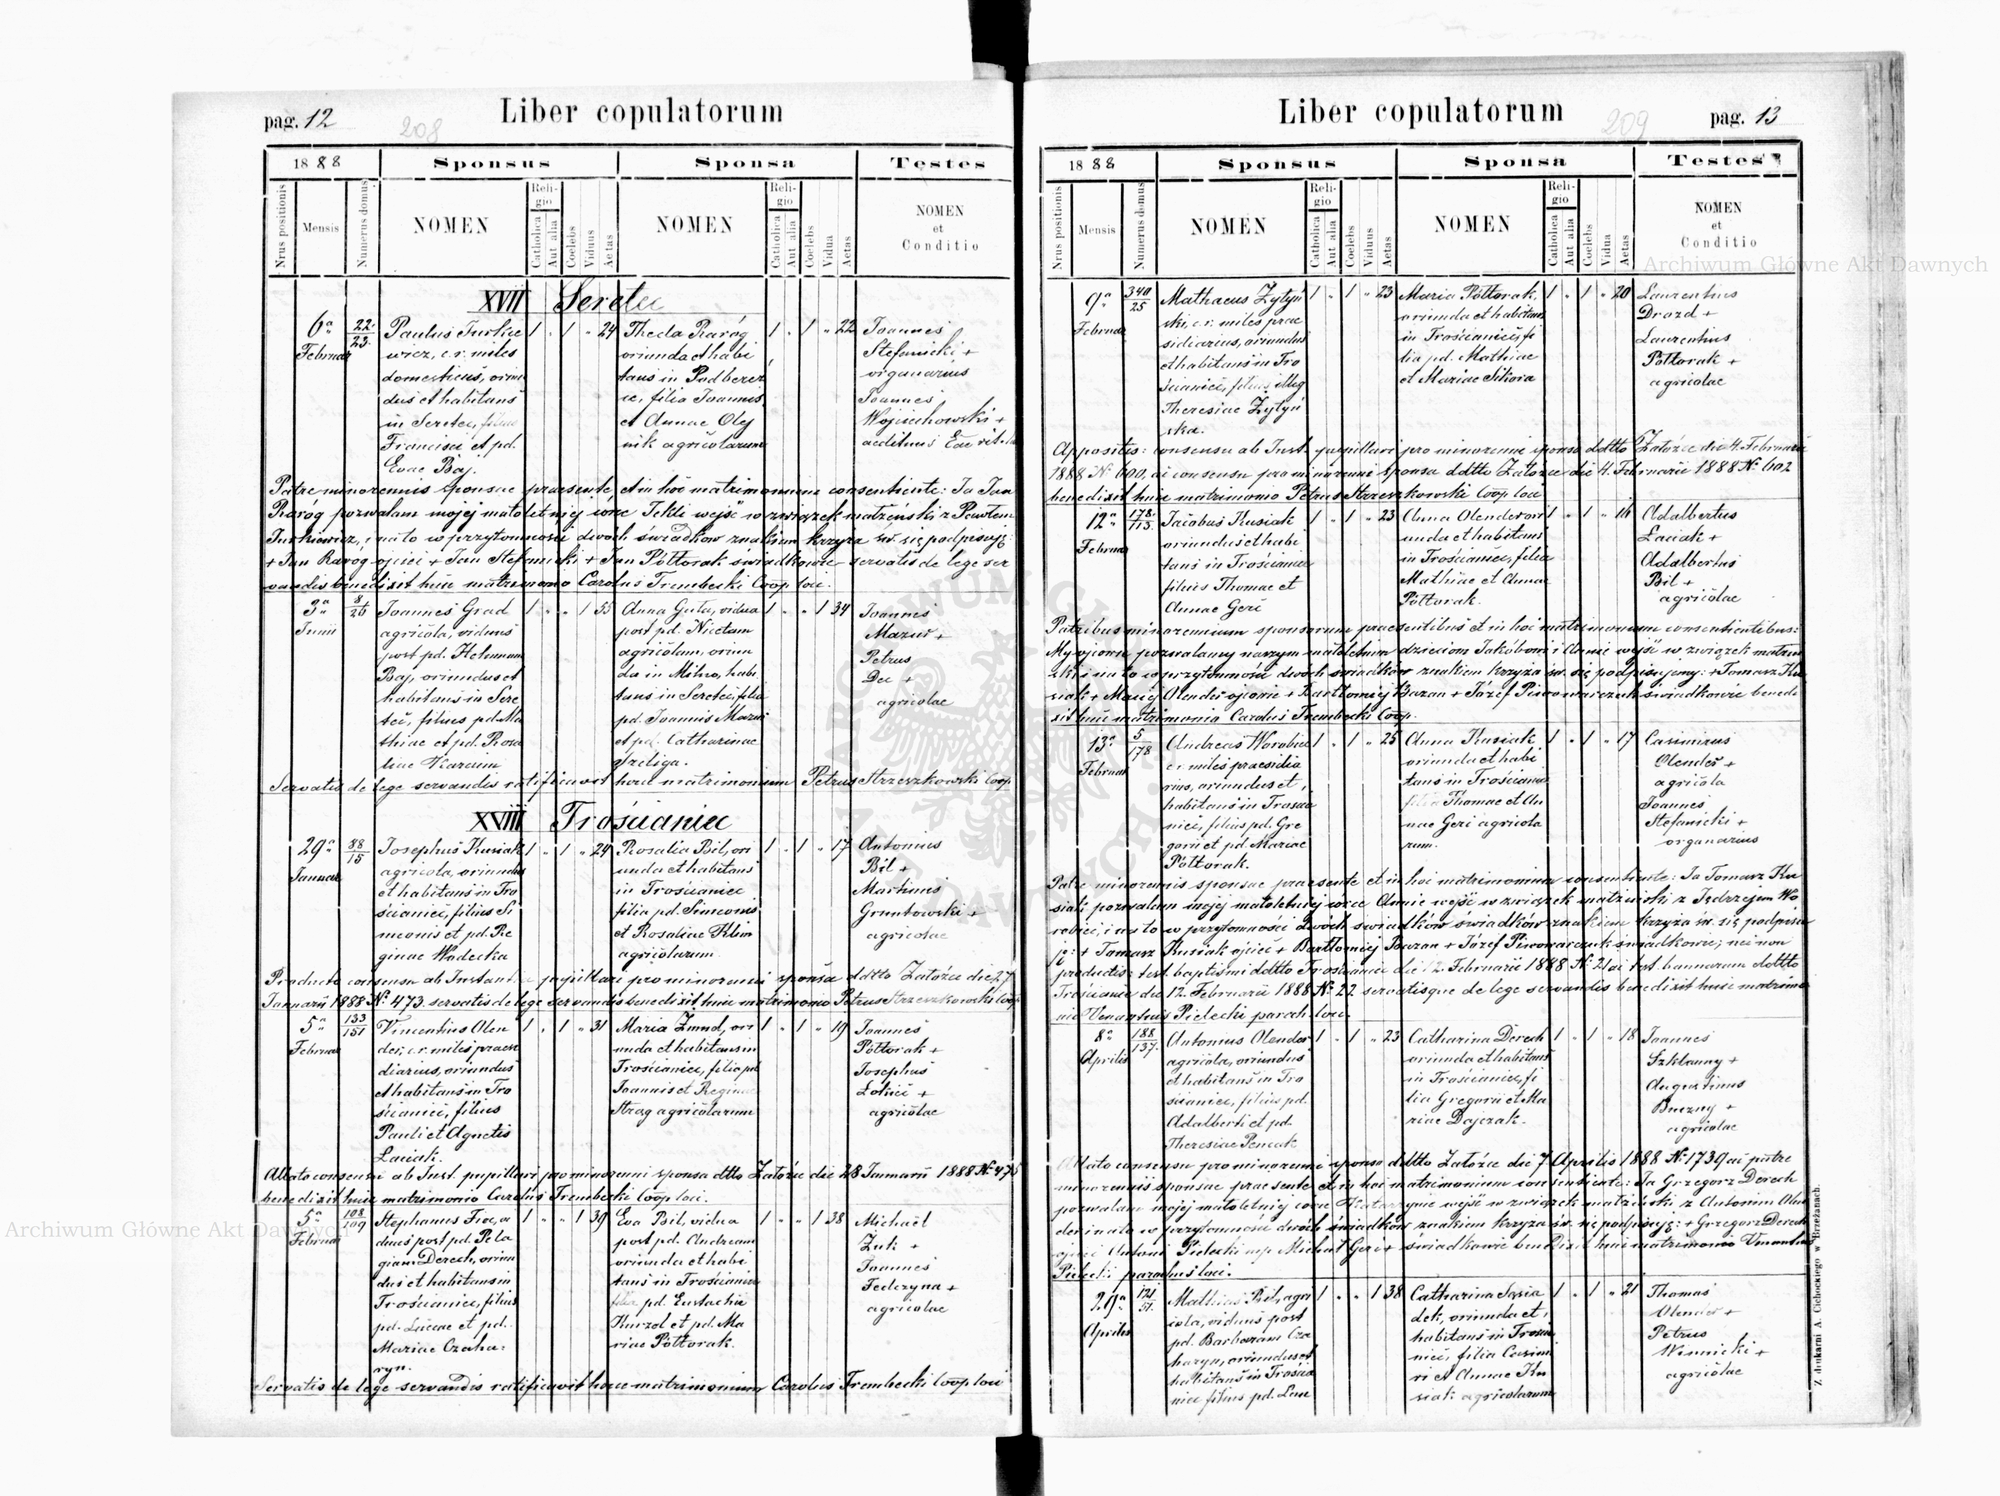 pag. 12
208
Liber copulatorum
1888
Sponsus
Sponsa
Testes
Nrus positionis
Mensis
Numerus domus
NOMEN
Religio
Catholica
Aut alia
Coelebs
Viduus
Aetas
NOMEN
Religio
Catholica
Aut alia
Coelebs
Vidua
Aetas
NOMEN
et
Conditio
XVII Seretec
6a
Februar
22/23
Paulus Turkie
wicz, c.r. miles
domesticus, oriun
dus et habitans
in Seretec, filius
Francisci et pd.
Evae Baj.
1 " 1 " 24
Thecla Raróg
oriunda et habi
tans in Podberez
ce, filia Joannis
et Annae Olej
nik agricolarum
1 " 1 " 22
Joannes
Stefanicki +
organarius
Joannes
Wojciechowski +
aedituus
Patre minorennis sponsae praesente, et in hoc matrimonium consentiente: Ja Jan
Raróg pozwalam mojej małoletniej córce Tekli wejść w związek małżeński z Pawłem
Turkiewicz, i na to w przytomności dwóch świadków znakiem krzyża św. się podpisuję:
+ Jan Raróg ojciec + Jan Stefanicki + Jan Półtorak świadkowie servatis de lege ser
vandis benedixit huic matrimonio Carolus Trembecki Coop. loci.
3a
Junii
8/26
Joannes Grad
agricola, viduus
post pd. Helenam
Baj, oriundus et
habitans in Sere
tec, filius pd. Ma
thiae et pd. Rosa
liae Karaim
1 " " 1 35
Anna Guła, vidua
post pd. Nicetam
agricolam, oriun
da in Milno, habi
tans in Seretec, filia
pd. Joannis Mazur
et pd. Catharinae
Szeliga.
1 " " 1 34
Joannes
Mazur +
Petrus
Dec +
agricolae
Servatis de lege servandis ratificavit hocce matrimonium Petrus Strzeszkowski Coop
XVIII Trościaniec
29a
Januar
88/15
Josephus Kusiak
agricola, oriundus
et habitans in Tro
ścianiec, filius Si
meonis et pd. Re
ginae Wadecka
1 " 1 " 24
Rosalia Bil, ori
unda et habitans
in Trościaniec
filia pd. Simeonis
et Rosaliae Klim
agricolarum
1 " 1 " 17
Antonius
Bil +
Martinus
Gruntowski +
agricolae
Producto consensu ab Instantia pupillari pro minorenni sponsa ddtto Załoźce die 27
Januarii 1888 No 473. servatis de lege servandis benedixit huic matrimonio Petrus Strzeszkowski Coop
5a
Februar
133/151
Vincentius Olen
der, c.r. miles praesi
diarius, oriundus
et habitans in Tro
ścianiec, filius
Pauli et Agnetis
Łaciak.
1 " 1 " 31
Maria Żmud, ori
unda et habitans in
Trościaniec, filia pd
Joannis et Reginae
Strag agricolarum
1 " 1 " 19
Joannes
Półtorak +
Josephus
Łotwic +
agricolae
Allato consensu ab Inst. pupillari pro minorenni sponsa ddto Załoźce die 28 Januarii 1888 No 475
benedixit huic matrimonio Carolus Trembecki Coop. loci.
5a
Februar
108/109
Stephanus Fior, vi
duus post pd. Pela
giam Derech, oriun
dus et habitans in
Trościaniec, filius
pd. Lucae et pd.
Mariae Czaha
ryn.
1 " " 1 39
Eva Bil, vidua
post pd. Andream
oriunda et habi
tans in Trościaniec
filia pd. Eustachii
Kurzel et pd. Ma
riae Półtorak.
1 " " 1 38
Michael
Żuk +
Joannes
Fedczyna +
agricolae
Servatis de lege servandis ratificavit hocce matrimonium Carolus Trembecki Coop loci
Liber copulatorum
209
pag. 13
1888
Sponsus
Sponsa
Testes
Nrus positionis
Mensis
Numerus domus
NOMEN
Religio
Catholica
Aut alia
Coelebs
Viduus
Aetas
NOMEN
Religio
Catholica
Aut alia
Coelebs
Vidua
Aetas
NOMEN
et
Conditio
9a
Februar
340/25
Mathaeus Żytyń
ski, c.r. miles prae
sidiarius, oriundus
et habitans in Tro
ścianiec, filius illeg
Theresiae Żytyń
ska.
1 " 1 " 23
Maria Półtorak,
oriunda et habitans
in Trościaniec, fi
lia pd. Mathiae
et Mariae Sikora
1 " 1 " 20
Laurentius
Drozd +
Laurentius
Półtorak +
agricolae
Appositis: consensu ab Inst. pupillari pro minorenni sponso ddtto Załoźce die 4. Februarii
1888 No 600, ac consensu pro minorenni sponsa ddtto Załoźce die 4. Februarii 1888 No 602
benedixit huic matrimonio Petrus Strzeszkowski Coop loci
12a
Februar
178/113
Jacobus Kusiak
oriundus et habi
tans in Trościaniec
filius Thomae et
Annae Geri
1 " 1 " 23
Anna Olender ori
unda et habitans
in Trościaniec, filia
Mathiae et Annae
Półtorak.
1 " 1 " 16
Adalbertus
Łaciak +
Adalbertus
Bil +
agricolae
Patribus minorennium sponsorum praesentibus et in hoc matrimonium consentientibus:
My ojcowie pozwalamy naszym małoletnim dzieciom Jakóbowi i Annie wejść w związek małżeń
ski, i na to w przytomności dwóch świadków znakiem krzyża św. się podpisujemy: + Tomasz Ku
siak + Maciej Olender ojcowie + Bartłomiej Bazan + Józef Piwowarczuk świadkowie benedi
xit huic matrimonio Carolus Trembecki Coop.
13a
Februar
5/178
Andreas Worobiec
c.r. miles praesidia
rius, oriundus et
habitans in Trościa
niec, filius pd. Gre
gorii et pd. Mariae
Półtorak.
1 " 1 " 25
Anna Kusiak
oriunda et habi
tans in Trościaniec
filia Thomae et An
nae Geri agricola
rum.
1 " 1 " 17
Casimirus
Olender +
agricola
Joannes
Stefanicki +
organarius
Patre minorennis sponsae praesente et in hoc matrimonium consentiente: Ja Tomasz Ku
siak pozwalam mojej małoletniej córce Annie wejść w związek małżeński z Jędrzejem Wo
robiec, i na to w przytomności dwóch świadków świadków znakiem krzyża św. się podpisu
ję: + Tomasz Kusiak ojciec + Bartłomiej Bazan + Józef Piwowarczuk świadkowie; nec non
productis: test. baptismi ddtto Trościaniec die 12. Februarii 1888 No 21 ac test. bannorum ddtto
Trościaniec die 12. Februarii 1888 No 22 servatisque de lege servandis benedixit huic matrimo
nio Venantius Pielecki paroch. loci.
8a
Aprilis
188/137
Antonius Olender
agricola, oriundus
et habitans in Tro
ścianiec, filius pd.
Adalberti et pd
Theresiae Pencak
1 " 1 " 23
Catharina Derech
oriunda et habitans
in Trościaniec, fi
lia Gregorii et Ma
riae Dajczak.
1 " 1 " 18
Joannes
Szklanny +
Augustinus
Buczny +
agricolae
Allato consensu pro minorenni sponso ddtto Załoźce die 7 Aprilis 1888 No 1739 ac patre
minorennis sponsae praesente et in hoc matrimonium consentiente: Ja Grzegorz Derech
pozwalam mojej małoletniej córce Katarzynie wejść w związek małżeński z Antonim Olen
der i na to w przytomności dwóch świadków znakiem krzyża św. się podpisuję: + Grzegorz Derech
ojciec Antoni Pielecki mp Michał Geri + świadkowie benedixit huic matrimonio Venantius
Pielecki parochus loci.
29a
Aprilis
121/51
Mathias Bil, agri
cola, viduus post
pd. Barbaram Cza
haryn, oriundus et
habitans in Trościa
niec filius pd. Lau
1 " " 1 38
Catharina Sąsia
dek, oriunda et
habitans in Trościa
niec, filia Casimi
ri et Annae Ku
siak agricolarum
1 " 1 " 21
Thomas
Olender +
Petrus
Winnicki +
agricolae
Z drukarni A. Cichockiego w Brzeżanach.
Archiwum Główne Akt Dawnych
Archiwum Główne Akt Dawnych
ARCHIWUM GŁÓWNE AKT DAWNYCH